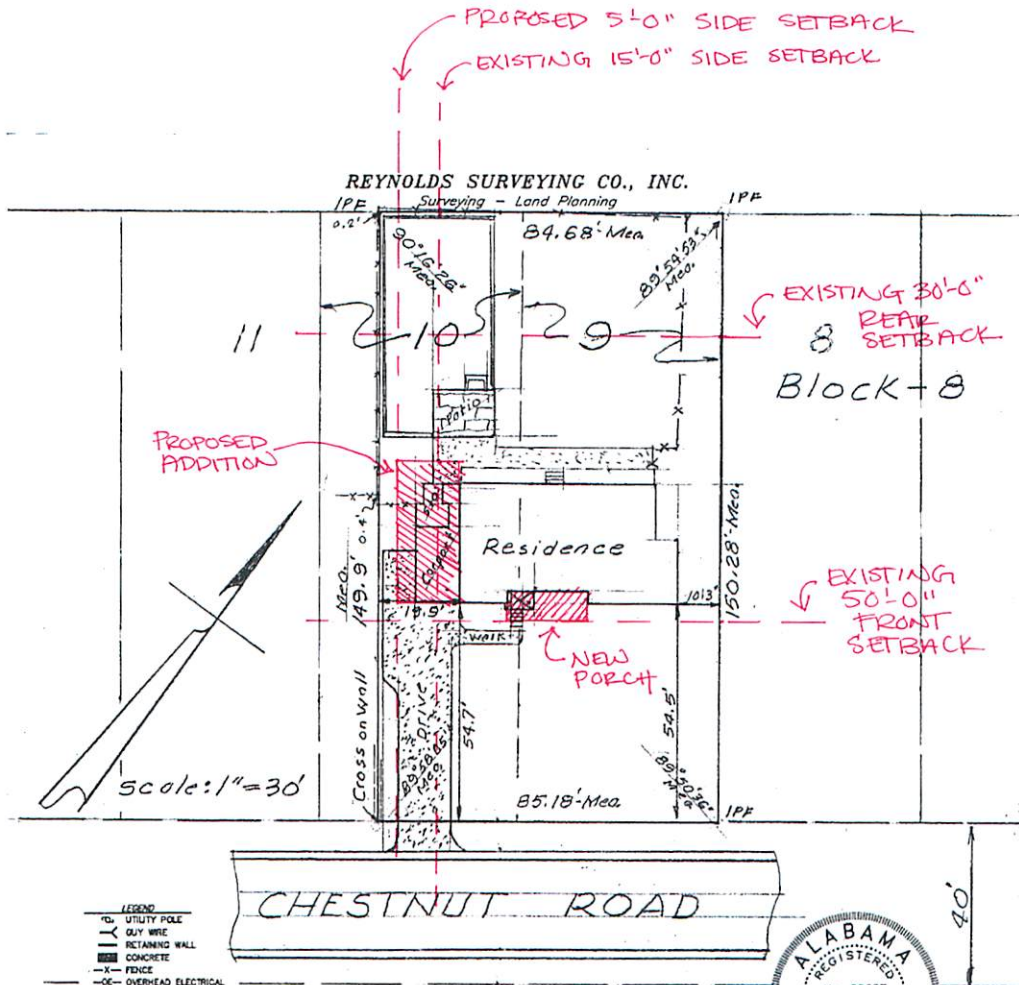 PROPOSED 5'-0" SIDE SETBACK
EXISTING 15'-0" SIDE SETBACK
REYNOLDS SURVEYING CO., INC.
Surveying - Land Planning
IPF
0.2'
84.68'-Mea.
IPF
90°16'26"
Mea.
89°54'53"
Mea.
EXISTING 30'-0"
REAR
SETBACK
11
10
9
8
Block-8
Patio
PROPOSED
ADDITION
0.4'
Carport
Residence
Mea.
149.9'
150.28'-Mea.
19.9'
10.13'
EXISTING
50'-0"
FRONT
SETBACK
Walk
NEW
PORCH
Cross on Wall
Drive
54.7'
54.5'
Mea.
89°50'36"
scale: 1"=30'
85.18'-Mea.
IPF
CHESTNUT ROAD
40'
LEGEND
UTILITY POLE
GUY WIRE
RETAINING WALL
CONCRETE
-X- FENCE
-OE- OVERHEAD ELECTRICAL
ALABAMA
REGISTERED